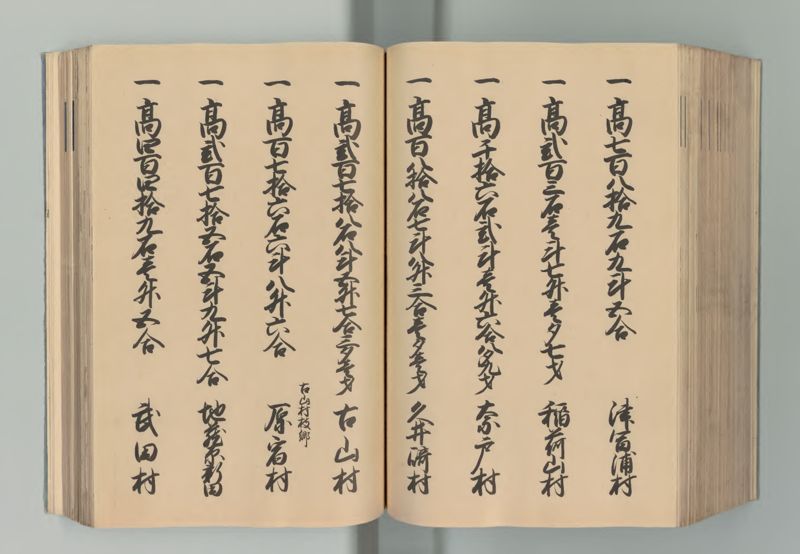 一 高七百八拾九石九斗五合 津富浦村
一 高弐百三石壱斗七升壱夕七才 稲荷山村
一 高千拾六石弐斗壱升六合八夕九才 奈戸村
一 高百八拾八石七斗八升三合壱夕壱才 久井崎村
一 高弐百七拾八石八斗五升七合三夕壱才 古山村
古山村枝郷
一 高百七拾六石六斗八升六合 原宿村
一 高弐百七拾五石五斗九升七合 地蔵原新田
一 高四百四拾九石壱升五合 武田村